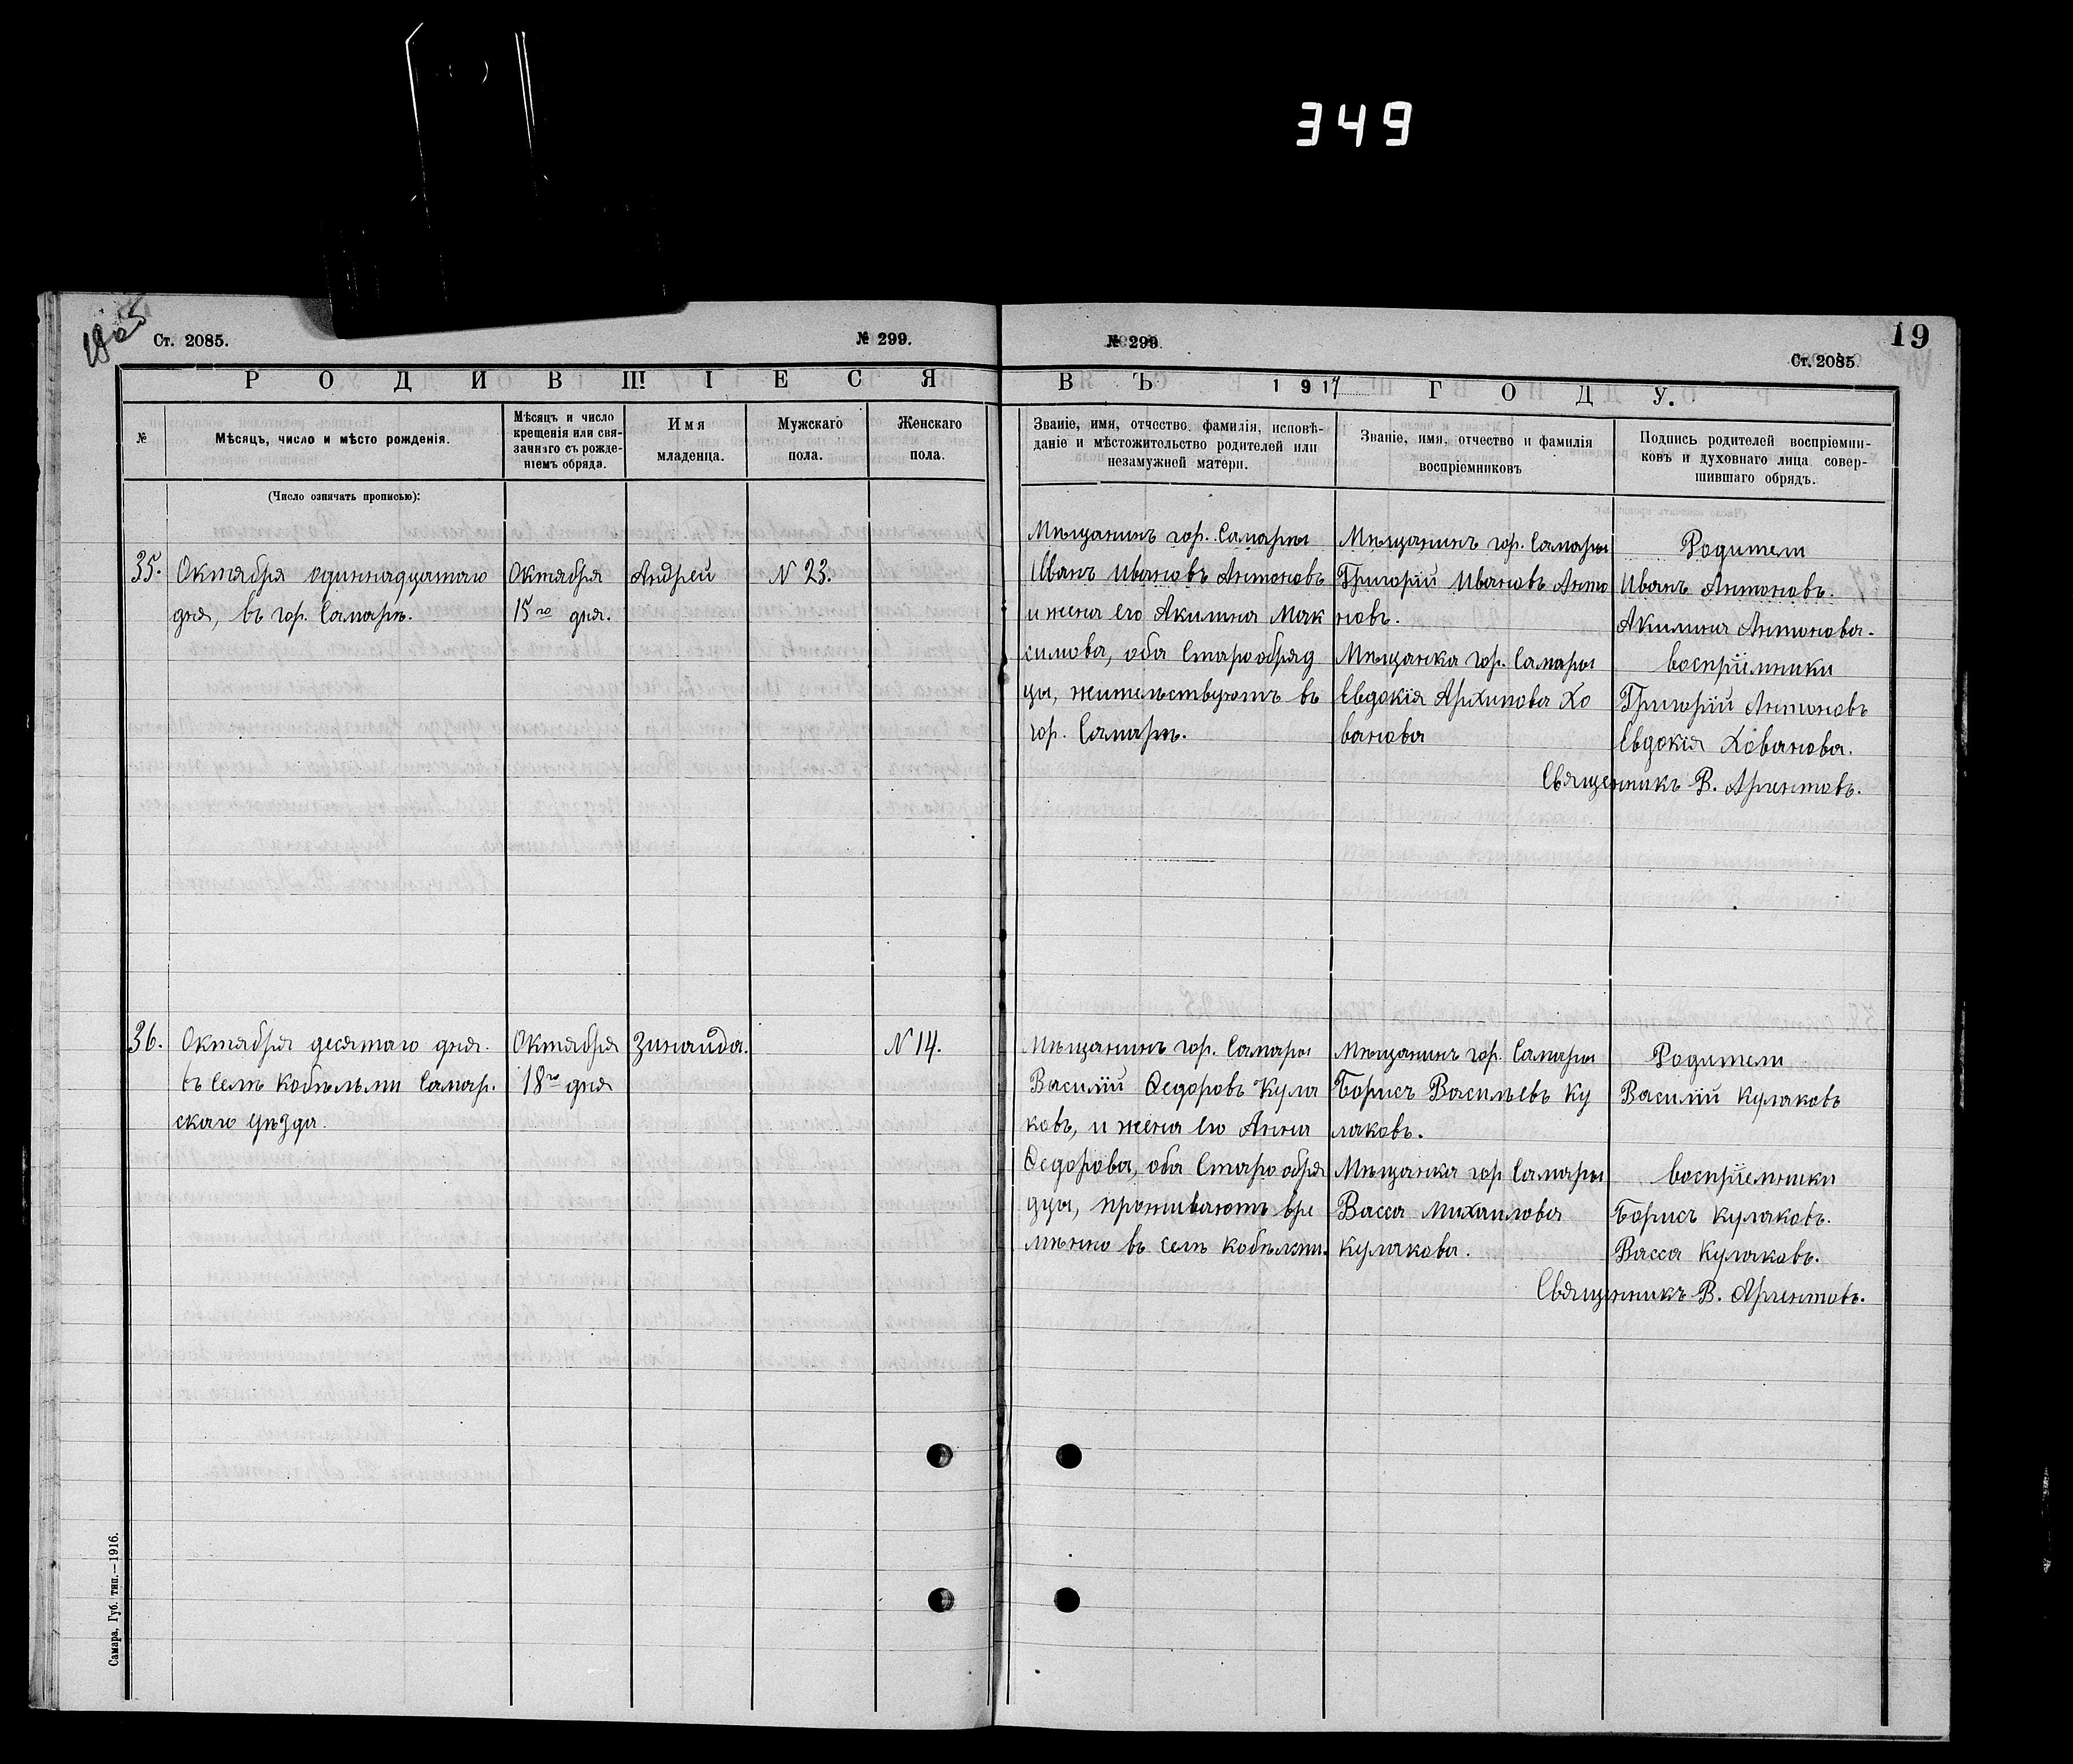 349
19
Ст. 2085.
№ 299.
№ 299
Ст. 2085
РОДИВШІЕСЯ
ВЪ 1917 ГОДУ.
№
Мѣсяцъ, число и мѣсто рожденія.
Мѣсяцъ и число
крещенія или свя-
заннаго съ рожде-
ніемъ обряда.
Имя
младенца.
Мужскаго
пола.
Женскаго
пола.
Званіе, имя, отчество, фамилія, исповѣ-
даніе и мѣстожительство родителей или
незамужней матери.
Званіе, имя, отчество и фамилія
воспріемниковъ
Подпись родителей воспріемни-
ковъ и духовнаго лица совер-
шившаго обрядъ.
(Число означать прописью):
35.
Октября одиннадцатаго
дня, въ гор. Самарѣ.
Октября
15го дня.
Андрей
N 23.
Мѣщанинъ гор. Самары
Иванъ Ивановъ Антоновъ
и жена его Акилина Мак
симова, оба Старообряд
цы, жительствуютъ въ
гор. Самарѣ.
Мѣщанинъ гор. Самары
Григорій Ивановъ Анто
новъ.
Мѣщанка гор. Самары
Евдокія Архипова Хо
ванова
Родители
Иванъ Антоновъ.
Акилина Антонова.
воспріемники
Григорій Антоновъ
Евдокія Хованова.
Священникъ В. Арգентовъ.
36.
Октября десятаго дня.
въ селѣ Кобѣльми Самар.
скаго уѣзда.
Октября
18го дня
Зинаида.
N 14.
Мѣщанинъ гор. Самары
Василій Ѳедоровъ Кула
ковъ, и жена его Анна
Ѳедорова, оба Старообря
дцы, проживаютъ вре
мѣнно въ селѣ Кобѣльми.
Мѣщанинъ гор. Самары
Борисъ Васильевъ Ку
лаковъ.
Мѣщанка гор Самары
Васса Михаилова
Кулакова.
Родители
Василій Кулаковъ
воспріемники
Борисъ Кулаковъ.
Васса Кулаковъ.
Священникъ В.
Самара, Губ. тип.—1916.